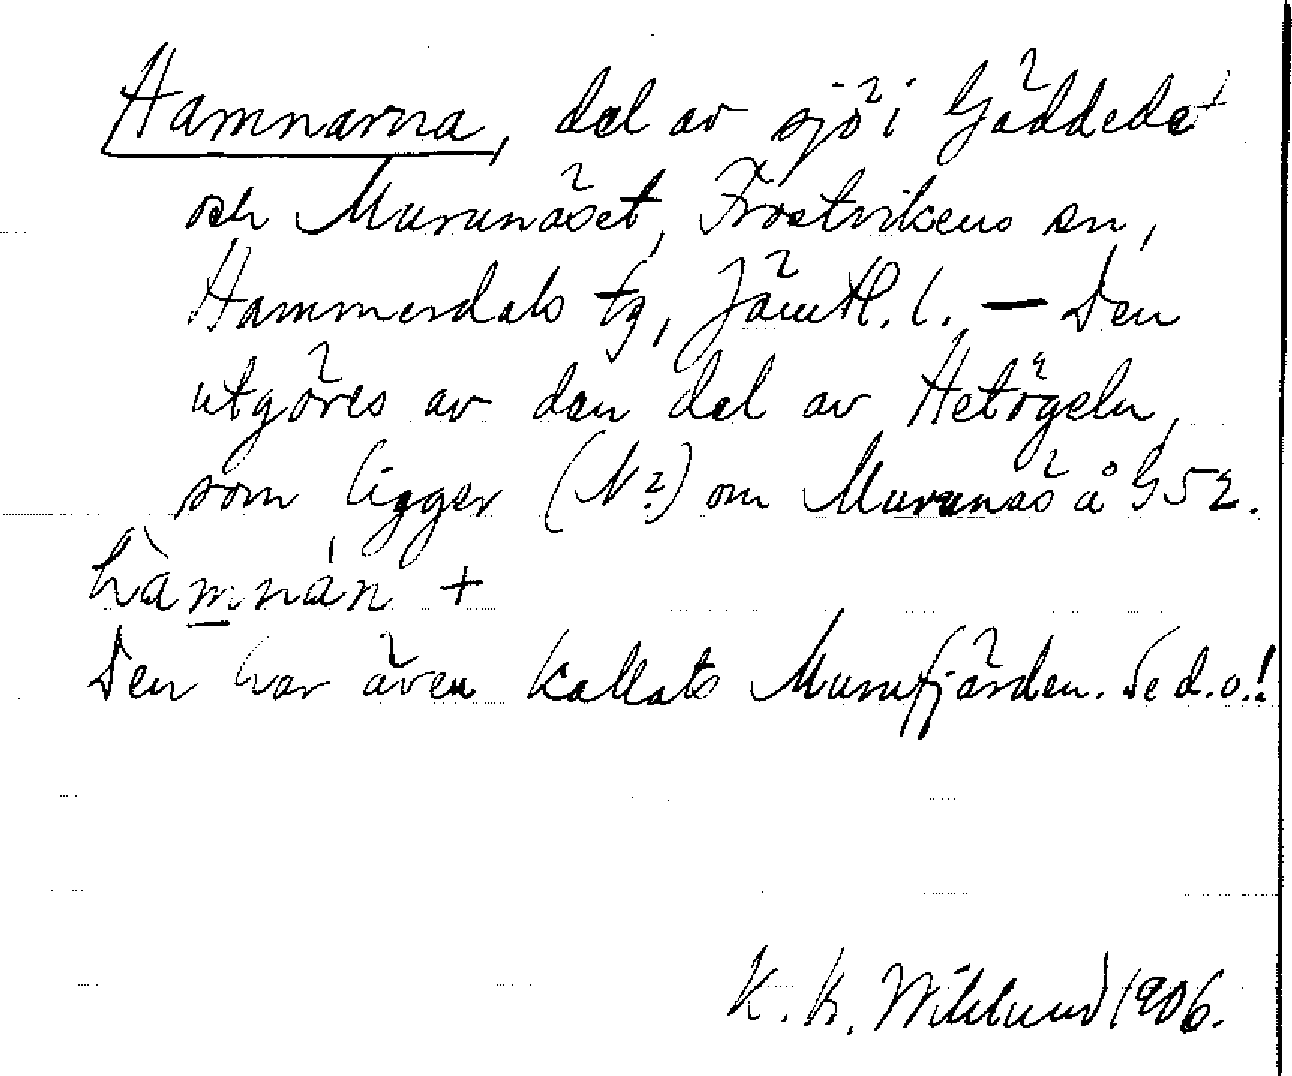 Hamnarna, del av sjö i Gäddedet
och Murunäset, Frostvikens sn,
Hammerdals tg, Jämtl. l. — Den
utgöres av den del av Hetögeln,
som ligger (N?) om Murunäs å G52.
hàmnán +
Den har även kallats Murufjärden. Se d.o.!
K. B. Wiklund 1906.